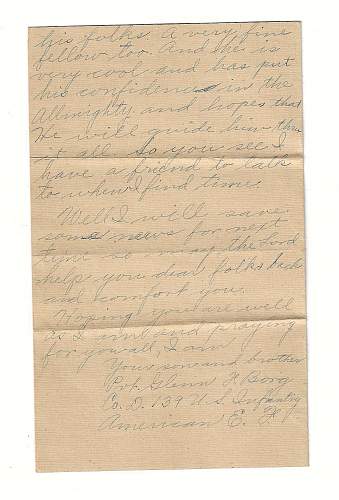 his folks. A very fine
fellow too. And he is
very cool and has put
his confidence in the
Allmighty and hopes that
He will guide him thru
it all So you see I
have a friend to talk
to when I find time.
Well I will save
some news for next
time so may the Lord
help you dear folks back
and comfort you.
Hoping you are well
as I am and praying
for you all, I am
Your son and brother
Pvt. Glenn H Borg
Co. D. 139 U.S. Infantry
American E. F.